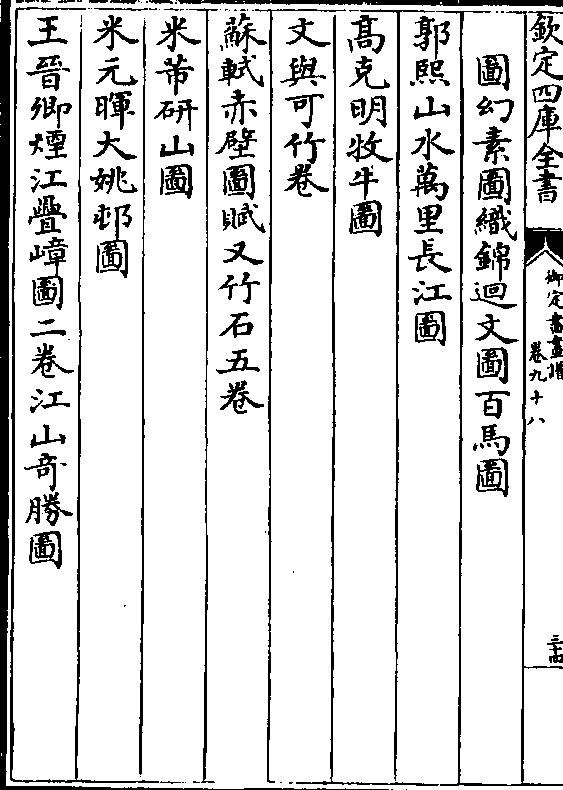 欽定四庫全書
御定書畫譜
卷九十八
三十四
圖幻素圖織錦迴文圖百馬圖
郭熙山水萬里長江圖
高克明牧牛圖
文與可竹卷
蘇軾赤壁圖賦又竹石五卷
米芾研山圖
米元暉大姚邨圖
王晉卿煙江疊嶂圖二卷江山奇勝圖